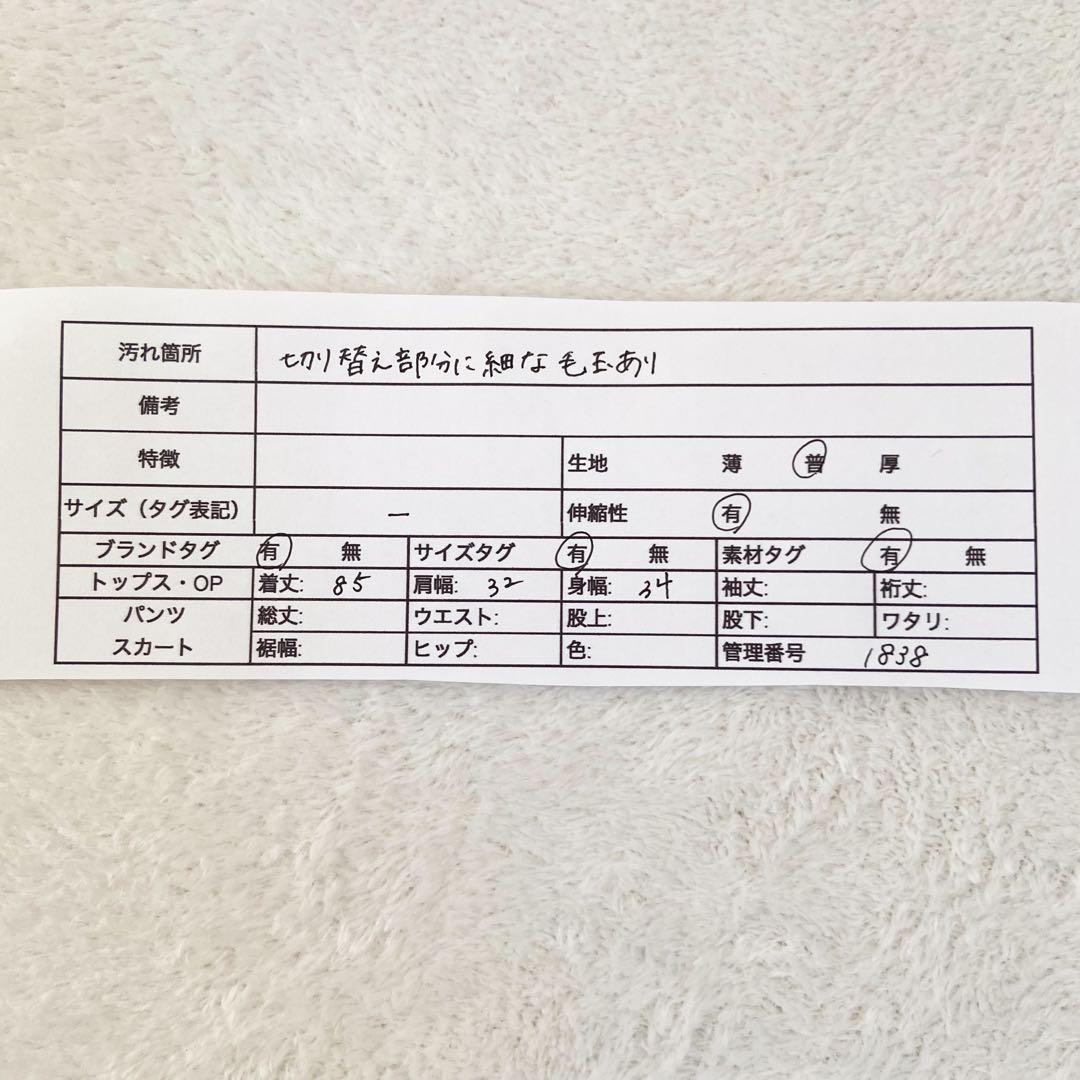 汚れ箇所 切り替え部分に細な毛玉あり
備考
特徴 生地 薄 普 厚
サイズ（タグ表記） ー 伸縮性 有 無
ブランドタグ 有 無 サイズタグ 有 無 素材タグ 有 無
トップス・OP 着丈: 85 肩幅: 32 身幅: 34 袖丈: 裄丈:
パンツ 総丈: ウエスト: 股上: 股下: ワタリ:
スカート 裾幅: ヒップ: 色: 管理番号 1838